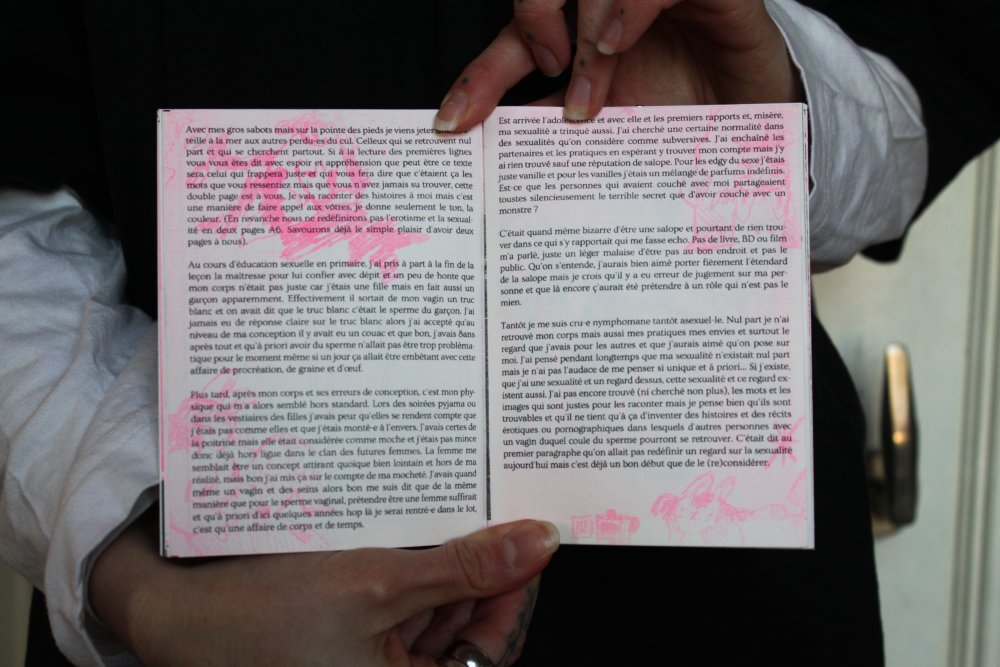 Avec mes gros sabots mais sur la pointe des pieds je viens jeter
teille à la mer aux autres perdu·es du cul. Celleux qui se retrouvent nul
part et qui se cherchent partout. Si à la lecture des premières lignes
vous vous êtes dit avec espoir et appréhension que peut être ce texte
sera celui qui frappera juste et va vous fera dire que c'étaient ça les
mots que vous ressentiez mais que vous n'avez jamais su trouver, cette
double page est à vous. Je vais raconter des histoires à moi mais c'est
une manière de faire appel aux vôtres, je donne seulement le ton, la
couleur. (En revanche nous ne redéfinirons pas l'erotisme et la sexual-
ité en deux pages A6. Savourons déjà le simple plaisir d'avoir deux
pages à nous).
Au cours d'éducation sexuelle en primaire, j'ai pris à part à la fin de la
leçon la maîtresse pour lui confier avec dépit et un peu de honte que
mon corps n'était pas juste car j'étais une fille mais en fait aussi un
garçon apparemment. Effectivement il sortait de mon vagin un truc
blanc et on avait dit que le truc blanc c'était le sperme du garçon. J'ai
jamais eu de réponse claire sur le truc blanc alors j'ai accepté qu'au
niveau de ma conception il y avait eu un couac et que bon, j'avais 8ans
après tout et qu'à priori avoir du sperme n'allait pas être trop probléma-
tique pour le moment même si un jour ça allait être embêtant avec cette
affaire de procréation, de graine et d'œuf.
Plus tard, après mon corps et ses erreurs de conception, c'est mon phy-
sique qui m'a alors semblé hors standard. Lors des soirées pyjama ou
dans les vestiaires des filles j'avais peur qu'elles se rendent compte que
j'étais pas comme elles et que j'étais monté·e à l'envers. J'avais certes de
la poitrine mais elle était considérée comme moche et j'étais pas mince
donc déjà hors ligue dans le clan des futures femmes. La femme me
semblait être un concept attirant quoique bien lointain et hors de ma
réalité, mais bon j'ai mis ça sur le compte de ma mocheté. J'avais quand
même un vagin et des seins alors bon me suis dit que de la même
manière que pour le sperme vaginal, prétendre être une femme suffirait
et qu'à priori d'ici quelques années hop là je serai rentré·e dans le lot,
c'est qu'une affaire de corps et de temps.
Est arrivée l'adolescence et avec elle et les premiers rapports et, misère,
ma sexualité a trinqué aussi. J'ai cherché une certaine normalité dans
des sexualités qu'on considère comme subversives. J'ai enchaîné les
partenaires et les pratiques en espérant y trouver mon compte mais j'y
ai rien trouvé sauf une réputation de salope. Pour les edgy du sexe j'étais
juste vanille et pour les vanilles j'étais un mélange de parfums indéfinis.
Est-ce que les personnes qui avaient couché avec moi partageaient
toustes silencieusement le terrible secret que d'avoir couché avec un
monstre ?
C'était quand même bizarre d'être une salope et pourtant de rien trou-
ver dans ce qui s'y rapportait qui me fasse echo. Pas de livre, BD ou film
m'a parlé, juste un léger malaise d'être pas au bon endroit et pas le
public. Qu'on s'entende, j'aurais bien aimé porter fièrement l'étendard
de la salope mais je crois qu'il y a eu erreur de jugement sur ma per-
sonne et que là encore ç'aurait été prétendre à un rôle qui n'est pas le
mien.
Tantôt je me suis cru·e nymphomane tantôt asexuel·le. Nul part je n'ai
retrouvé mon corps mais aussi mes pratiques mes envies et surtout le
regard que j'avais pour les autres et que j'aurais aimé qu'on pose sur
moi. J'ai pensé pendant longtemps que ma sexualité n'existait nul part
mais je n'ai pas l'audace de me penser si unique et à priori... Si j'existe,
que j'ai une sexualité et un regard dessus, cette sexualité et ce regard ex-
istent aussi. J'ai pas encore trouvé (ni cherché non plus), les mots et les
images qui sont justes pour les raconter mais je pense bien qu'ils sont
trouvables et qu'il ne tient qu'à ça d'inventer des histoires et des récits
érotiques ou pornographiques dans lesquels d'autres personnes avec
un vagin duquel coule du sperme pourront se retrouver. C'était dit au
premier paragraphe qu'on allait pas redéfinir un regard sur la sexualité
aujourd'hui mais c'est déjà un bon début que de le (re)considérer.